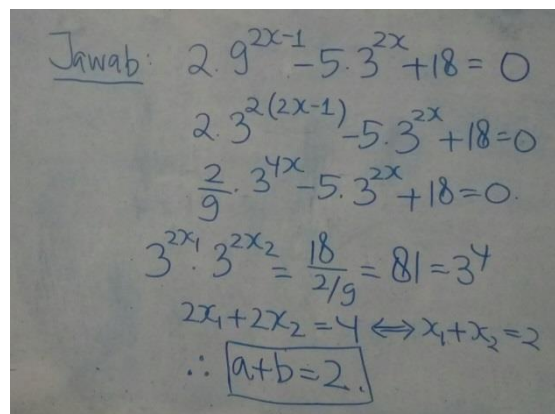 Jawab: 2.9^{2x-1} - 5.3^{2x} + 18 = 0
2.3^{2(2x-1)} - 5.3^{2x} + 18 = 0
2/9 . 3^{4x} - 5.3^{2x} + 18 = 0.
3^{2x₁} . 3^{2x₂} = 18/(2/9) = 81 = 3^4
2x₁ + 2x₂ = 4 ⟺ x₁ + x₂ = 2
∴ a+b = 2.